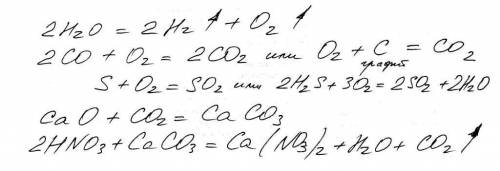 2H₂O = 2H₂↑ + O₂↑
2CO + O₂ = 2CO₂ или O₂ + C = CO₂
S + O₂ = SO₂ или 2H₂S + 3O₂ = 2SO₂ + 2H₂O
CaO + CO₂ = CaCO₃
2HNO₃ + CaCO₃ = Ca(NO₃)₂ + H₂O + CO₂↑